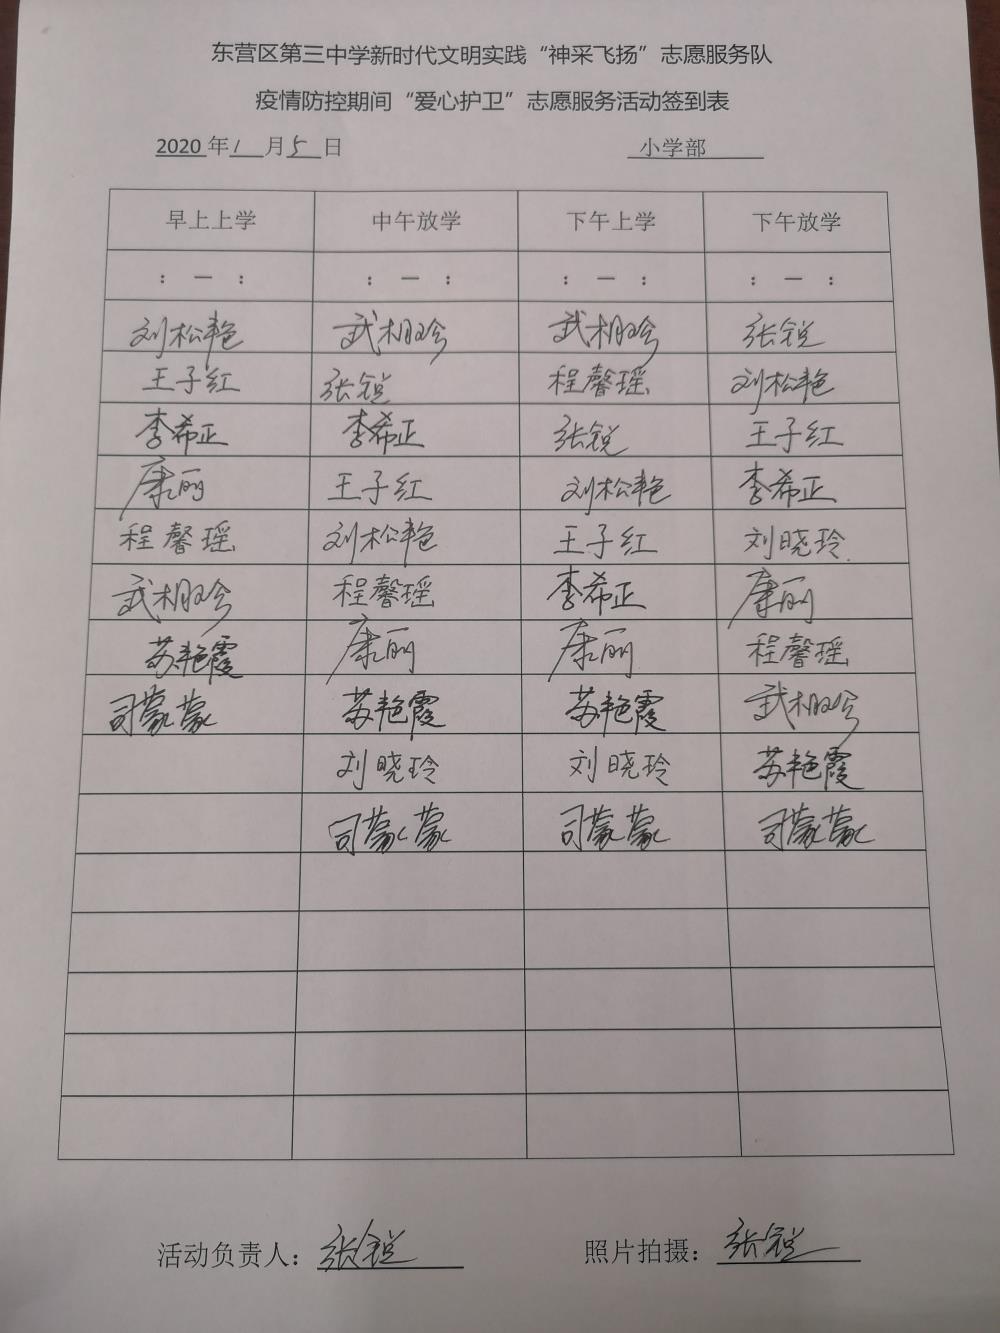 东营区第三中学新时代文明实践“神采飞扬”志愿服务队
疫情防控期间“爱心护卫”志愿服务活动签到表
2020 年 1 月 5 日 小学部
早上上学 中午放学 下午上学 下午放学
： — ： ： — ： ： — ： ： — ：
刘松艳 武相玲 武相玲 张锐
王子红 张锐 程馨瑶 刘松艳
李希正 李希正 张锐 王子红
康丽 王子红 刘松艳 李希正
程馨瑶 刘松艳 王子红 刘晓玲
武相玲 程馨瑶 李希正 康丽
苏艳霞 康丽 康丽 程馨瑶
司蒙蒙 苏艳霞 苏艳霞 武相玲
刘晓玲 刘晓玲 苏艳霞
司蒙蒙 司蒙蒙 司蒙蒙
活动负责人：张锐 照片拍摄：张锐